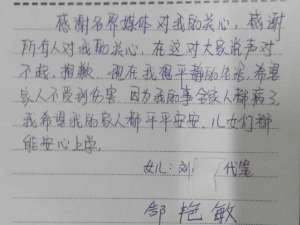 感谢各界媒体对我的关心，感谢
所有人对我的关心，在这对大家说声对
不起，抱歉。现在我想平静的生活，希望
家人不受到伤害，因为我的事全家人都病了，
我希望我的家人都平平安安，儿女们都
能安心上学。
女儿：刘 代笔
郜艳敏